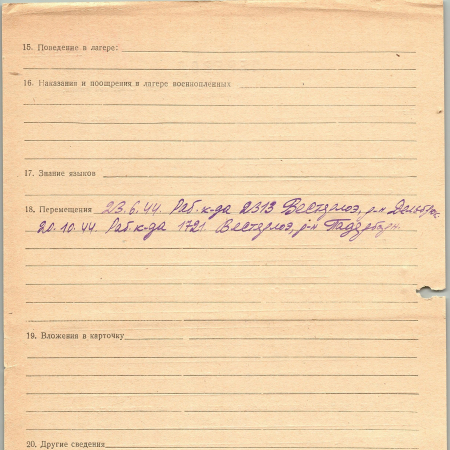 15. Поведение в лагере:
16. Наказания и поощрения в лагере военнопленных
17. Знание языков
18. Перемещения 23.6.44. Раб. к-да 2313 Вестерлоэ, р-н Дельбрюк.
20.10.44. Раб. к-да 1721. Вестерлоэ, р-н Падерборн.
19. Вложения в карточку
20. Другие сведения